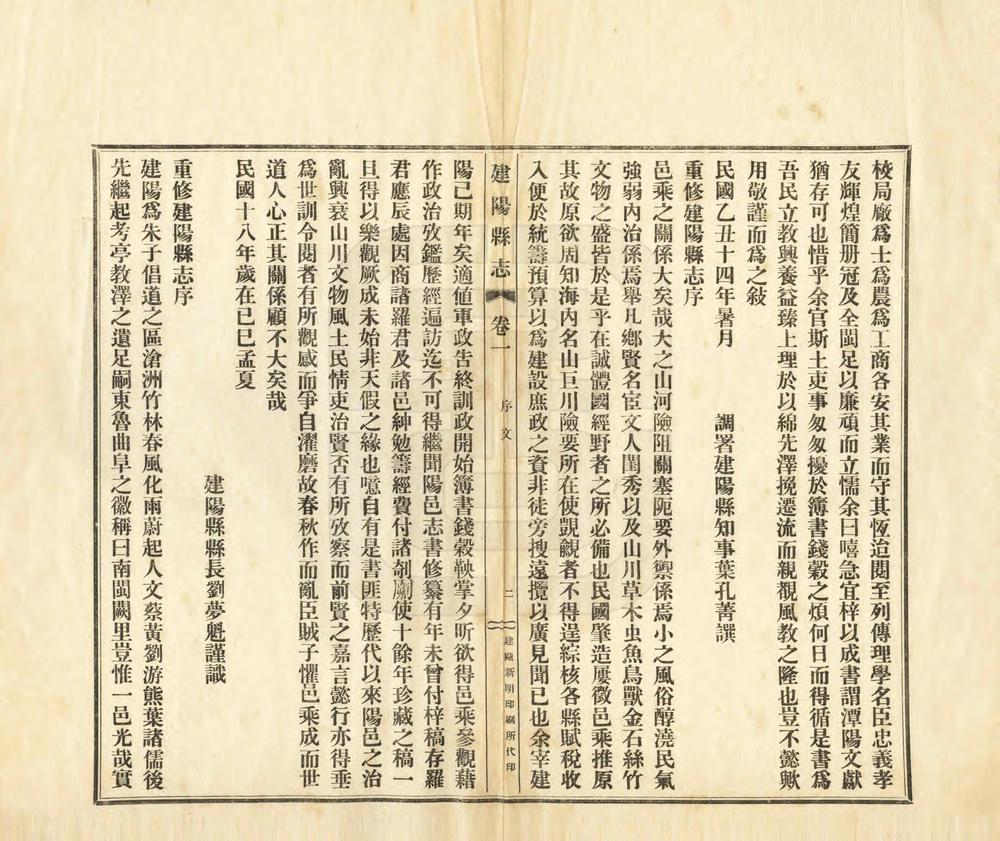 校局廠為士為農為工商各安其業而守其恆迨閱至列傳理學名臣忠義孝
友輝煌簡册冠及全閩足以廉頑而立懦余曰嘻急宜梓以成書謂潭陽文獻
猶存可也惜乎余官斯土吏事匆匆擾於簿書錢穀之煩何日而得循是書為
吾民立教興養益臻上理於以綿先澤挽遷流而親覩風教之隆也豈不懿歟
用敬謹而為之敍
民國乙丑十四年暑月 調署建陽縣知事葉孔菁譔
重修建陽縣志序
邑乘之關係大矣哉大之山河險阻關塞阨要外禦係焉小之風俗醇澆民氣
強弱內治係焉舉凡鄉賢名宦文人閨秀以及山川草木虫魚鳥獸金石絲竹
文物之盛皆於是乎在誠體國經野者之所必備也民國肇造屢徵邑乘推原
其故原欲周知海內名山巨川險要所在使覬覦者不得逞綜核各縣賦稅收
入便於統籌預算以為建設庶政之資非徒旁搜遠攬以廣見聞已也余宰建
建陽縣志 卷一 序文 二 建甌新明印刷所代印
陽已期年矣適値軍政告終訓政開始簿書錢穀鞅掌夕昕欲得邑乘參觀藉
作政治攷鑑歷經遍訪迄不可得繼聞陽邑志書修纂有年未曾付梓稿存羅
君應辰處因商諸羅君及諸邑紳勉籌經費付諸剞劂使十餘年珍藏之稿一
旦得以樂觀厥成未始非天假之緣也噫自有是書匪特歷代以來陽邑之治
亂興衰山川文物風土民情吏治賢否有所攷察而前賢之嘉言懿行亦得垂
為世訓令閱者有所觀感而爭自濯磨故春秋作而亂臣賊子懼邑乘成而世
道人心正其關係顧不大矣哉
民國十八年歲在已巳孟夏
建陽縣縣長劉夢魁謹識
重修建陽縣志序
建陽為朱子倡道之區滄洲竹林春風化雨蔚起人文蔡黃劉游熊葉諸儒後
先繼起考亭教澤之遺足嗣東魯曲阜之徽稱曰南閩闕里豈惟一邑光哉實